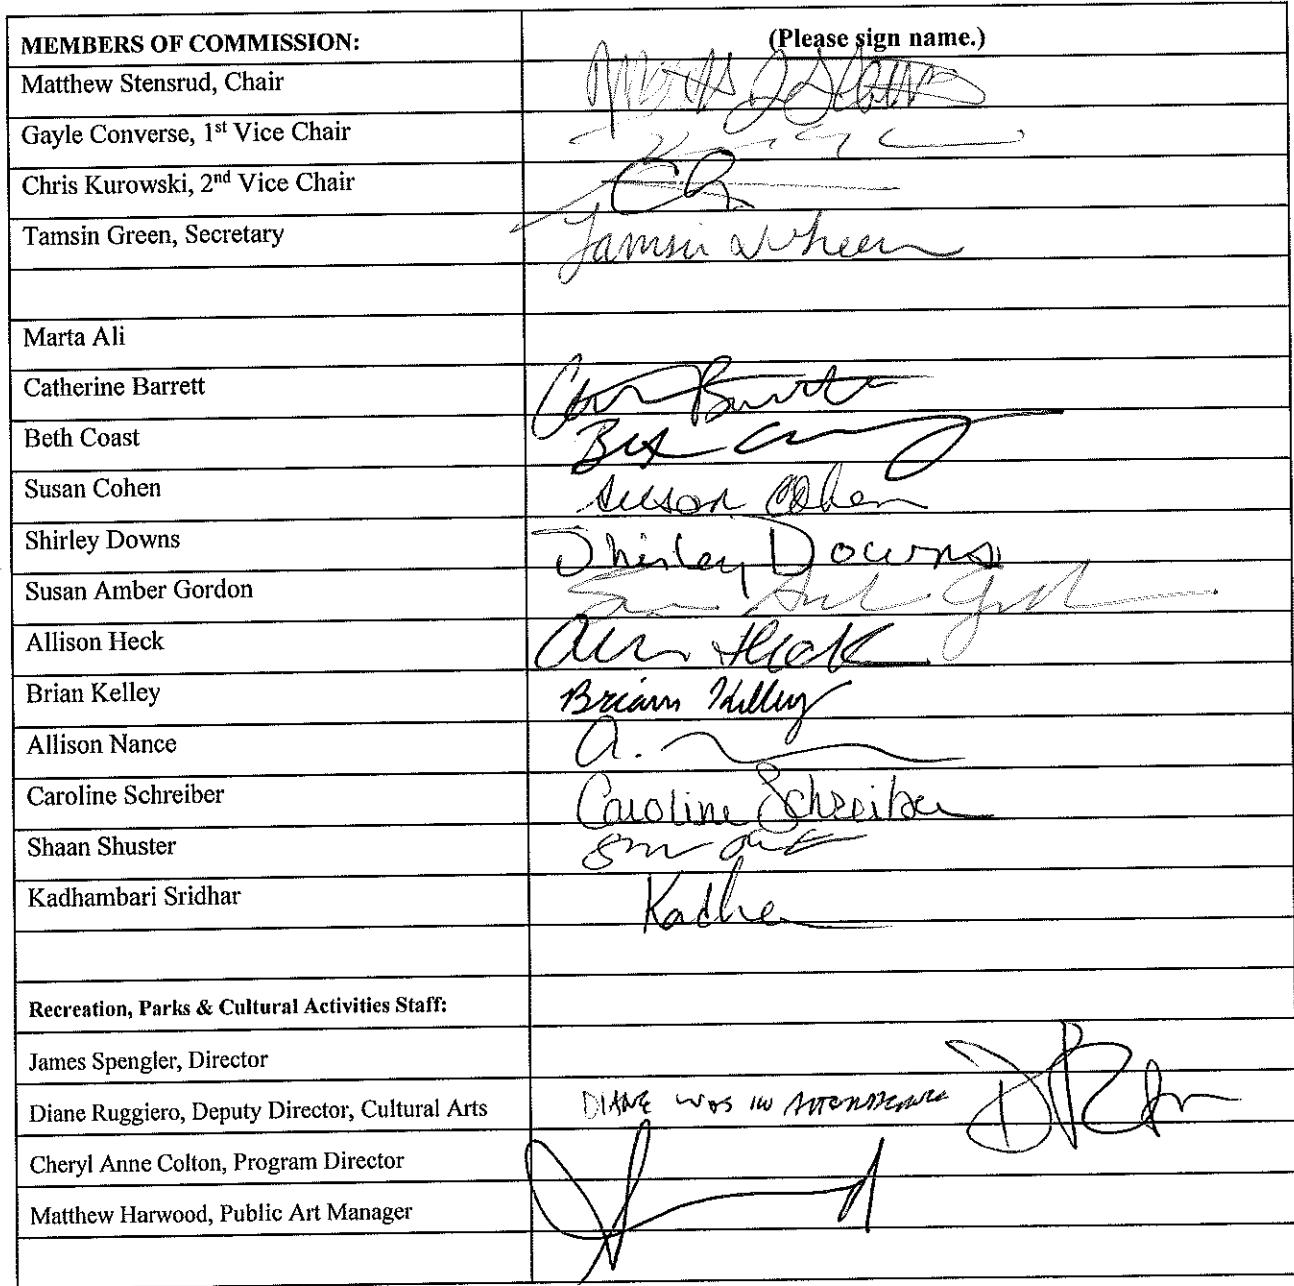 MEMBERS OF COMMISSION: (Please sign name.)
Matthew Stensrud, Chair
Gayle Converse, 1st Vice Chair
Chris Kurowski, 2nd Vice Chair
Tamsin Green, Secretary Tamsin
Marta Ali
Catherine Barrett
Beth Coast
Susan Cohen Susan Cohen
Shirley Downs Shirley Downs
Susan Amber Gordon
Allison Heck Heck
Brian Kelley Brian Kelley
Allison Nance A.
Caroline Schreiber Caroline Schreiber
Shaan Shuster
Kadhambari Sridhar Kadha
Recreation, Parks & Cultural Activities Staff:
James Spengler, Director
Diane Ruggiero, Deputy Director, Cultural Arts DIANE WAS IN ATTENDANCE
Cheryl Anne Colton, Program Director
Matthew Harwood, Public Art Manager